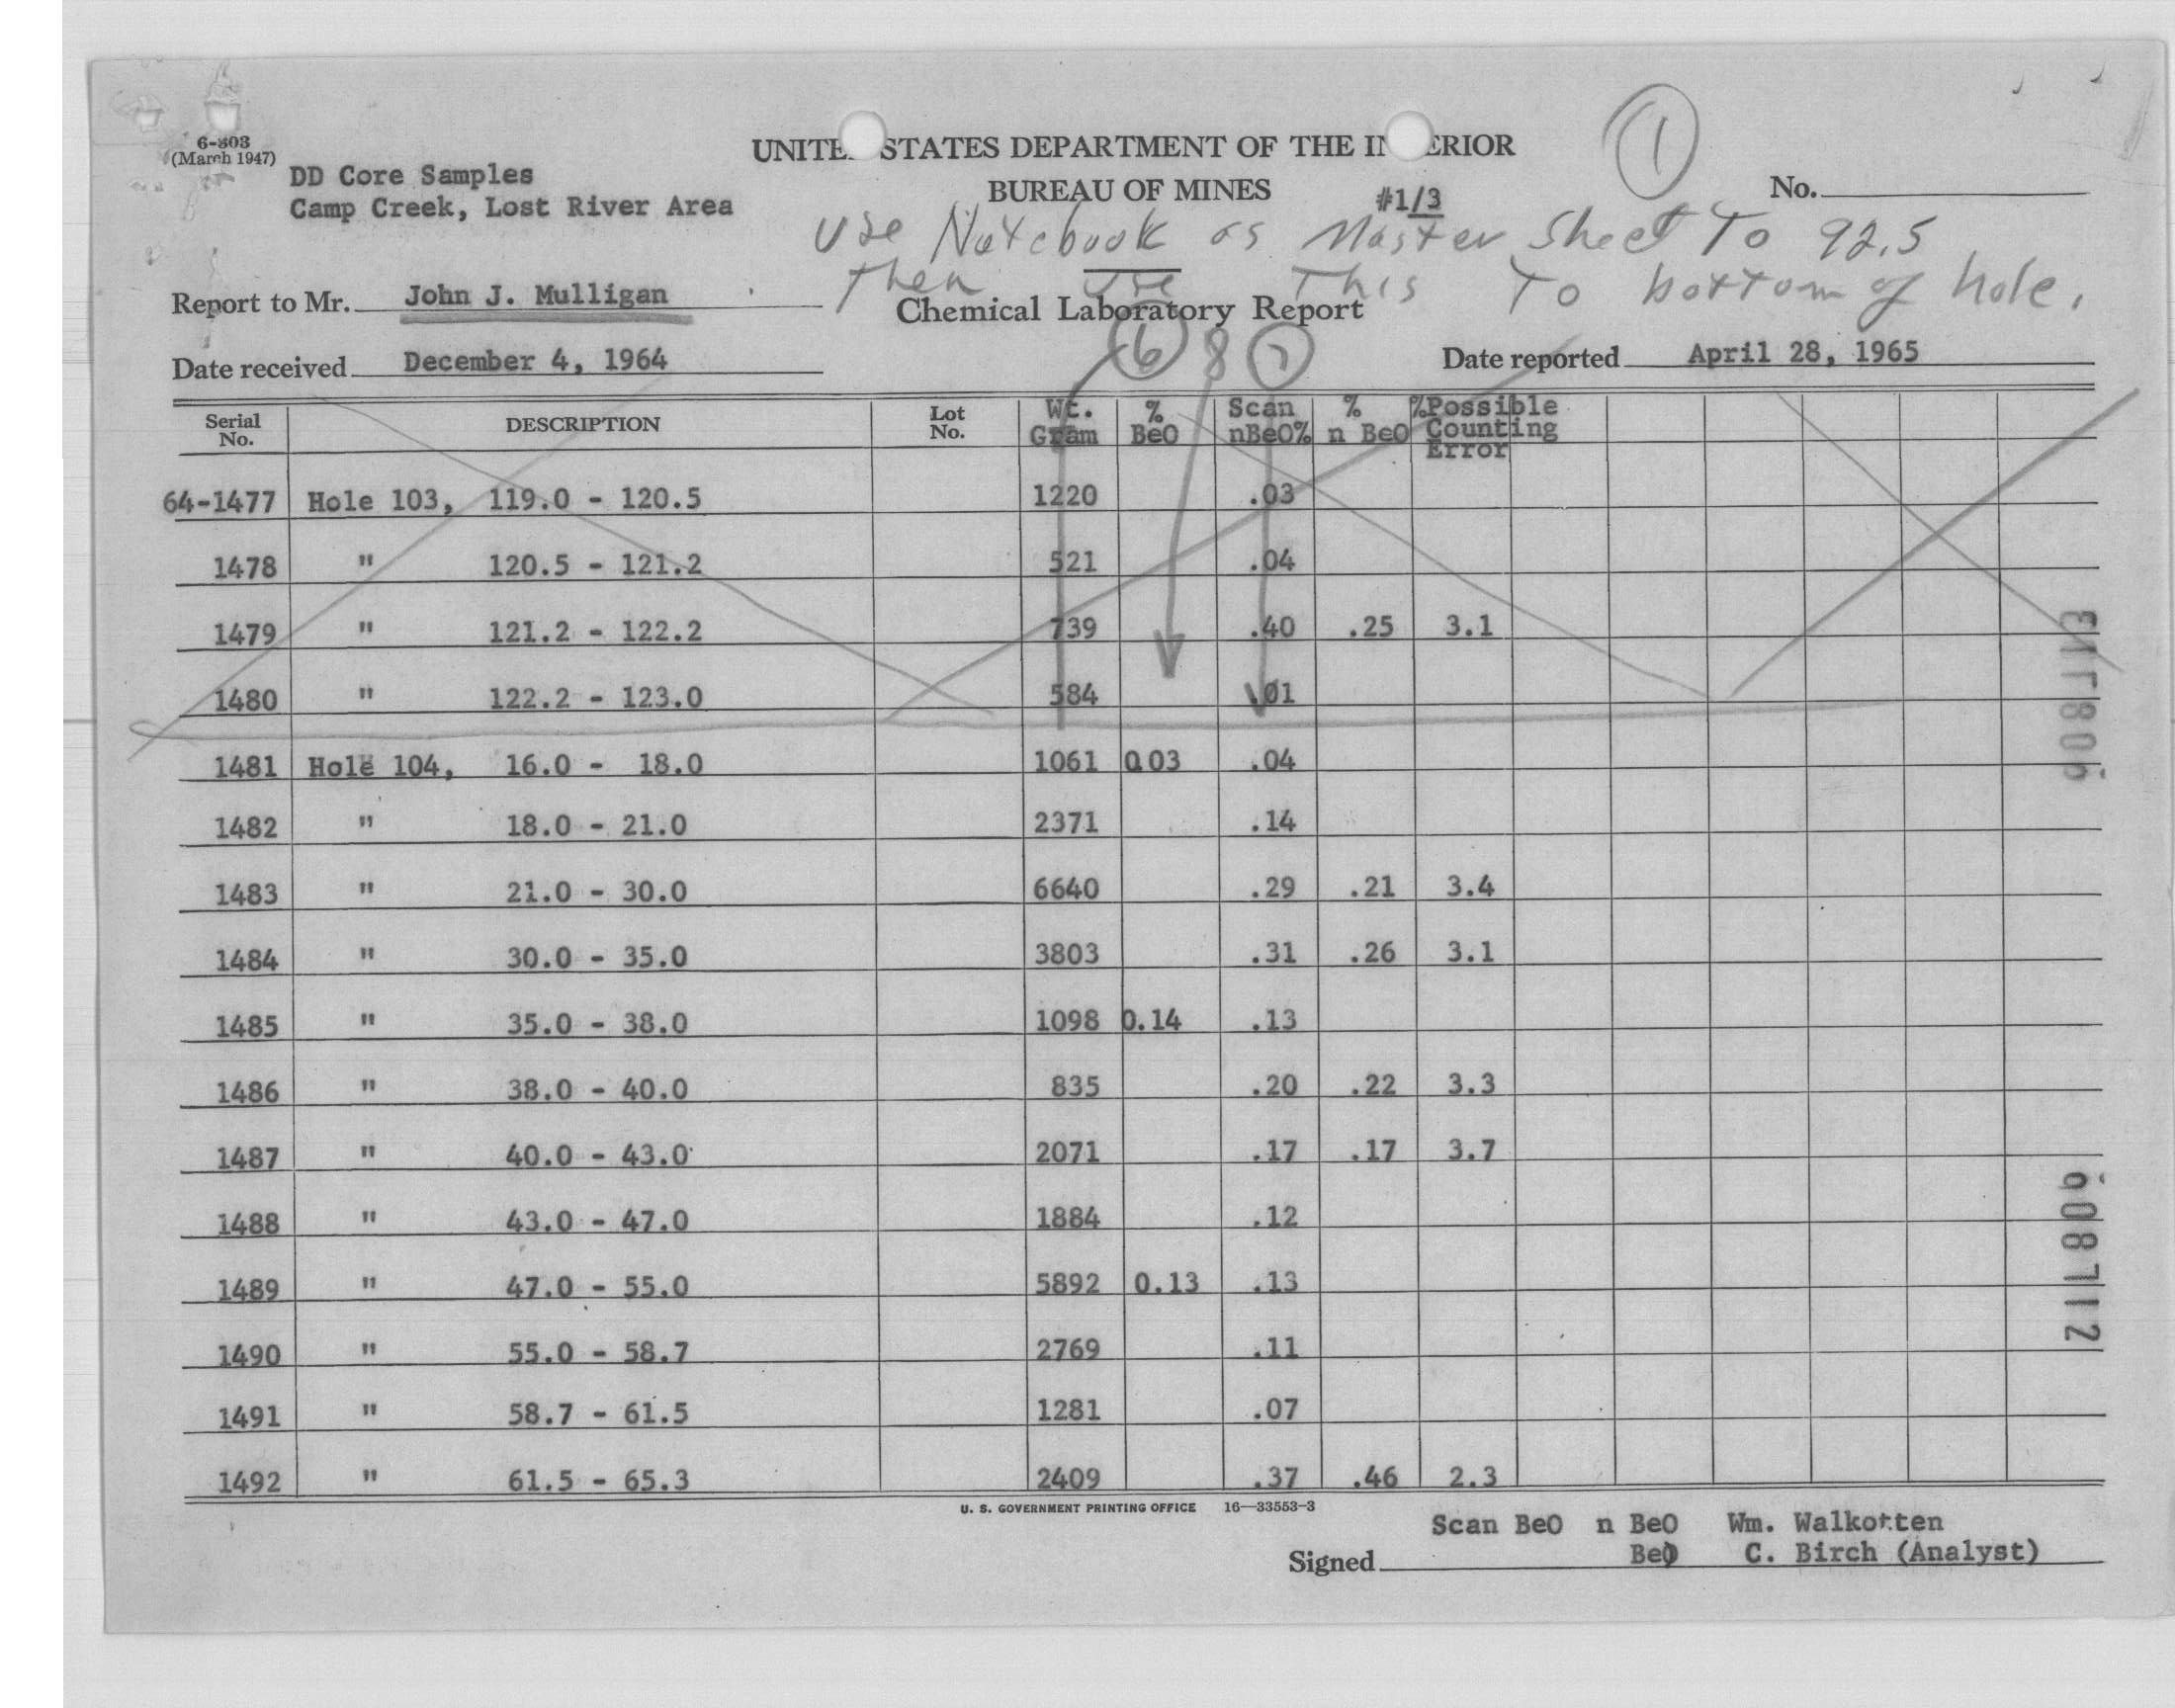 6-303
(March 1947)
DD Core Samples
Camp Creek, Lost River Area
UNITE STATES DEPARTMENT OF THE IN ERIOR
BUREAU OF MINES
#1/3
1
No.
Use Notebook as Master Sheet To 92.5
Then Use This To bottom of hole.
Report to Mr. John J. Mulligan
Chemical Laboratory Report
Date received December 4, 1964
6 8 7
Date reported April 28, 1965
Serial No. DESCRIPTION Lot No. Wt. Gram % BeO Scan nBeO% % n BeO %Possible Counting Error
64-1477 Hole 103, 119.0 - 120.5 1220 .03
1478 " 120.5 - 121.2 521 .04
1479 " 121.2 - 122.2 739 .40 .25 3.1
1480 " 122.2 - 123.0 584 .01
1481 Hole 104, 16.0 - 18.0 1061 0.03 .04
1482 " 18.0 - 21.0 2371 .14
1483 " 21.0 - 30.0 6640 .29 .21 3.4
1484 " 30.0 - 35.0 3803 .31 .26 3.1
1485 " 35.0 - 38.0 1098 0.14 .13
1486 " 38.0 - 40.0 835 .20 .22 3.3
1487 " 40.0 - 43.0 2071 .17 .17 3.7
1488 " 43.0 - 47.0 1884 .12
1489 " 47.0 - 55.0 5892 0.13 .13
1490 " 55.0 - 58.7 2769 .11
1491 " 58.7 - 61.5 1281 .07
1492 " 61.5 - 65.3 2409 .37 .46 2.3
U. S. GOVERNMENT PRINTING OFFICE 16—33553-3
Scan BeO n BeO Wm. Walkotten
Signed BeO C. Birch (Analyst)